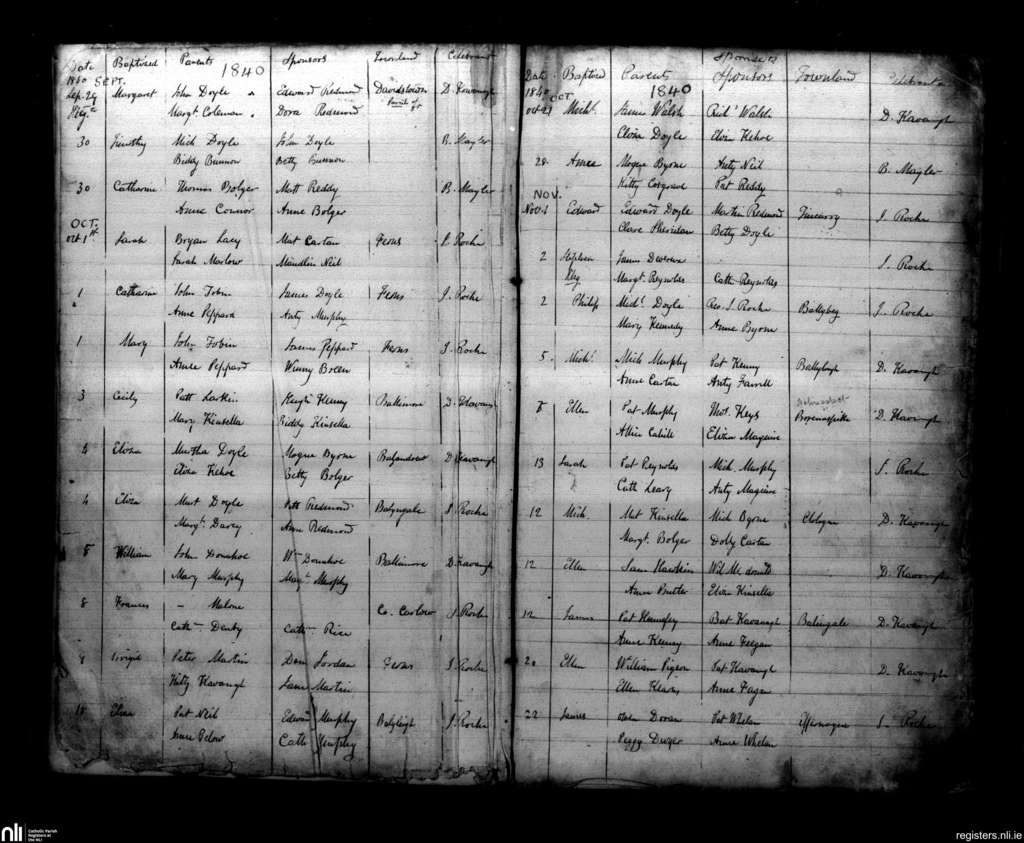 Date Baptized Parents 1840 Sponsors Townland Celebrant
1840 SEPT.
Sep. 29 Margaret John Doyle Edward Redmond Davidstown D. Kavanagh
Margt. Coleman Dora Redmond
30 Timothy Mich Doyle John Doyle B. Mayler
Biddy Bunnon Betty Bunnon
30 Catharine Thomas Bolger Matt Reddy B. Mayler
Anne Connor Anne Bolger
OCT.
Oct 1st Sarah Bryan Lacy Mat Cartan Ferns J. Roche
Sarah Marlow Maudlin Neil
1 Catharine John Tobin James Doyle Ferns J. Roche
Anne Peppard Anty Murphy
1 Mary John Tobin James Peppard Ferns J. Roche
Anne Peppard Winny Breen
3 Cecily Patt Larkin Kenny Baltimore D. Kavanagh
Mary Kinsella Biddy Kinsella
4 Eliza Murtha Doyle Mogue Byrne D. Kavanagh
Eliza Kehoe Betty Bolger
4 Eliza Murt Doyle Patt Redmond Balyngale J. Roche
Margt. Darcy Ann Redmond
8 William John Donohoe Wm Donohoe Baltimore D. Kavanagh
Mary Murphy Margt. Murphy
8 Frances – Malone Co. Carlow J. Roche
Cath Denby Cath Rice
9 Brigid Peter Martin Den Jordan Ferns J. Roche
Kitty Kavanagh Jam Martin
18 Eliza Pat Neil Edward Murphy Balyleigh J. Roche
Anne Cath Murphy
Sponsors
Date Baptized Parents Sponsors Townland Celebrant
1840 OCT 1840
Oct 21 Mich. James Walsh Rich. Walsh D. Kavanagh
Eliza Doyle Eliza Kehoe
28 Anne Mogue Byrne Anty Neil B. Mayler
Kitty Cosgrave Pat Reddy
NOV.
Nov. 1 Edward Edward Doyle Martin Redmond Tincurry J. Roche
Clare Sheridan Betty Doyle
2 Stephen James Devereux J. Roche
Margt. Reynolds Cath Reynolds
2 Philip Mich. Doyle Rev. J. Roche Ballybeg J. Roche
Mary Kennedy Anne Byrne
5 Mich. Mich Murphy Pat Kenny Ballyleigh D. Kavanagh
Anne Cartan Anty Farrell
8 Ellen Pat Murphy Keys D. Kavanagh
Allice Cahill Eliza Maguire
13 Sarah Pat Reynolds Mich. Murphy J. Roche
Cath Leary Anty Maguire
12 Mich Mat Kinsella Mich Byrne Clologue D. Kavanagh
Margt. Bolger Dolly Cartan
12 Ellen Sam Hawkins Wil McDonald D. Kavanagh
Anne Butler Eliza Kinsella
12 James Pat Humfrey Bat Kavanagh Balingale D. Kavanagh
Anne Kenny Anne Feegan
20 Ellen William Pigeon Pat Kavanagh D. Kavanagh
Ellen Kearns Anne Fagan
22 James Owen Doran Pat Whelan Effernogue J. Roche
Peggy Dwyer Anne Whelan
nli Catholic Parish
Registers at
the NLI
registers.nli.ie